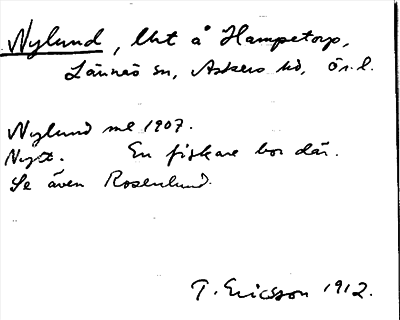 Nylund, lht å Hampetorp,
Lännäs sn, Askers hd, Ör. l.
Nylund me 1907.
Nytt. En fiskare bor där.
Se även Rosenlund.
T. Ericsson 1912.